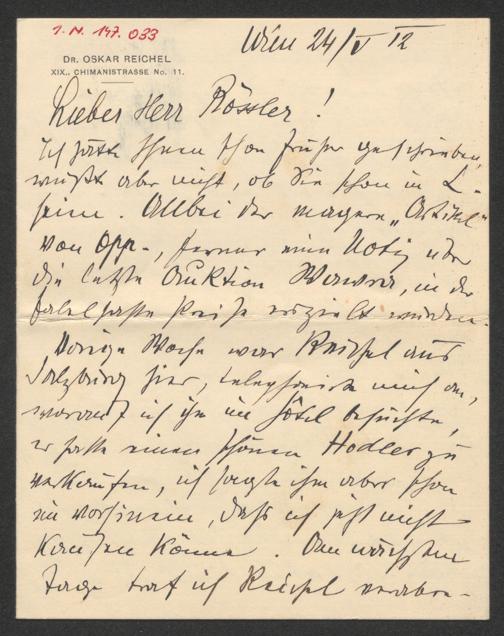 I. N. 147.033
Wien 24/V 12
DR. OSKAR REICHEL
XIX., CHIMANISTRASSE No. 11.
Lieber Herr Rössler!
Ich hätte Ihnen schon früher geschrieben,
wußte aber nicht, ob Sie schon in L-
seien. Anbei der magere „Artikel"
von Opp-, ferner eine Notiz über
die letzte Auktion Wawra, in der
fabelhafte Preise erzielt wurden.
Vorige Woche war Reichel aus
Salzburg hier, telephonierte mich an,
worauf ich ihn im Hôtel besuchte,
er hatte einen schönen Hodler zu
verkaufen, ich sagte ihm aber schon
im vorhinein, daß ich jetzt nicht
kaufen könne. Am nächsten
Tage traf ich Reichel